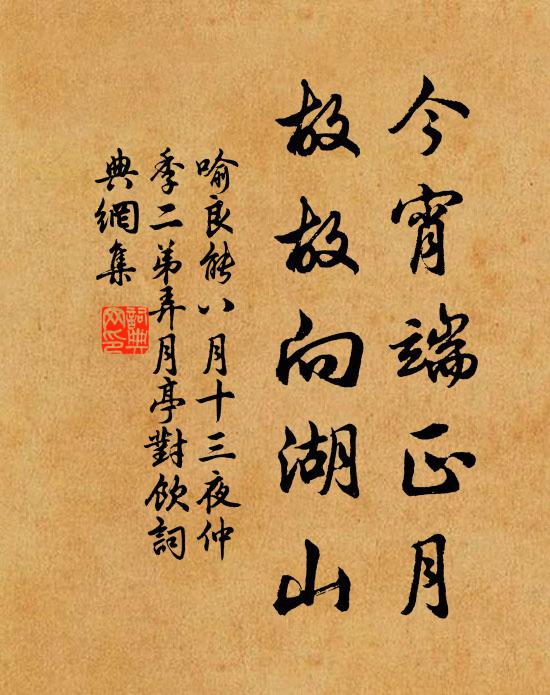 今宵端正月
故故向湖山
喻良能八月十三夜仲
季二弟弄月亭對飲詞
典網集
詞典
网印